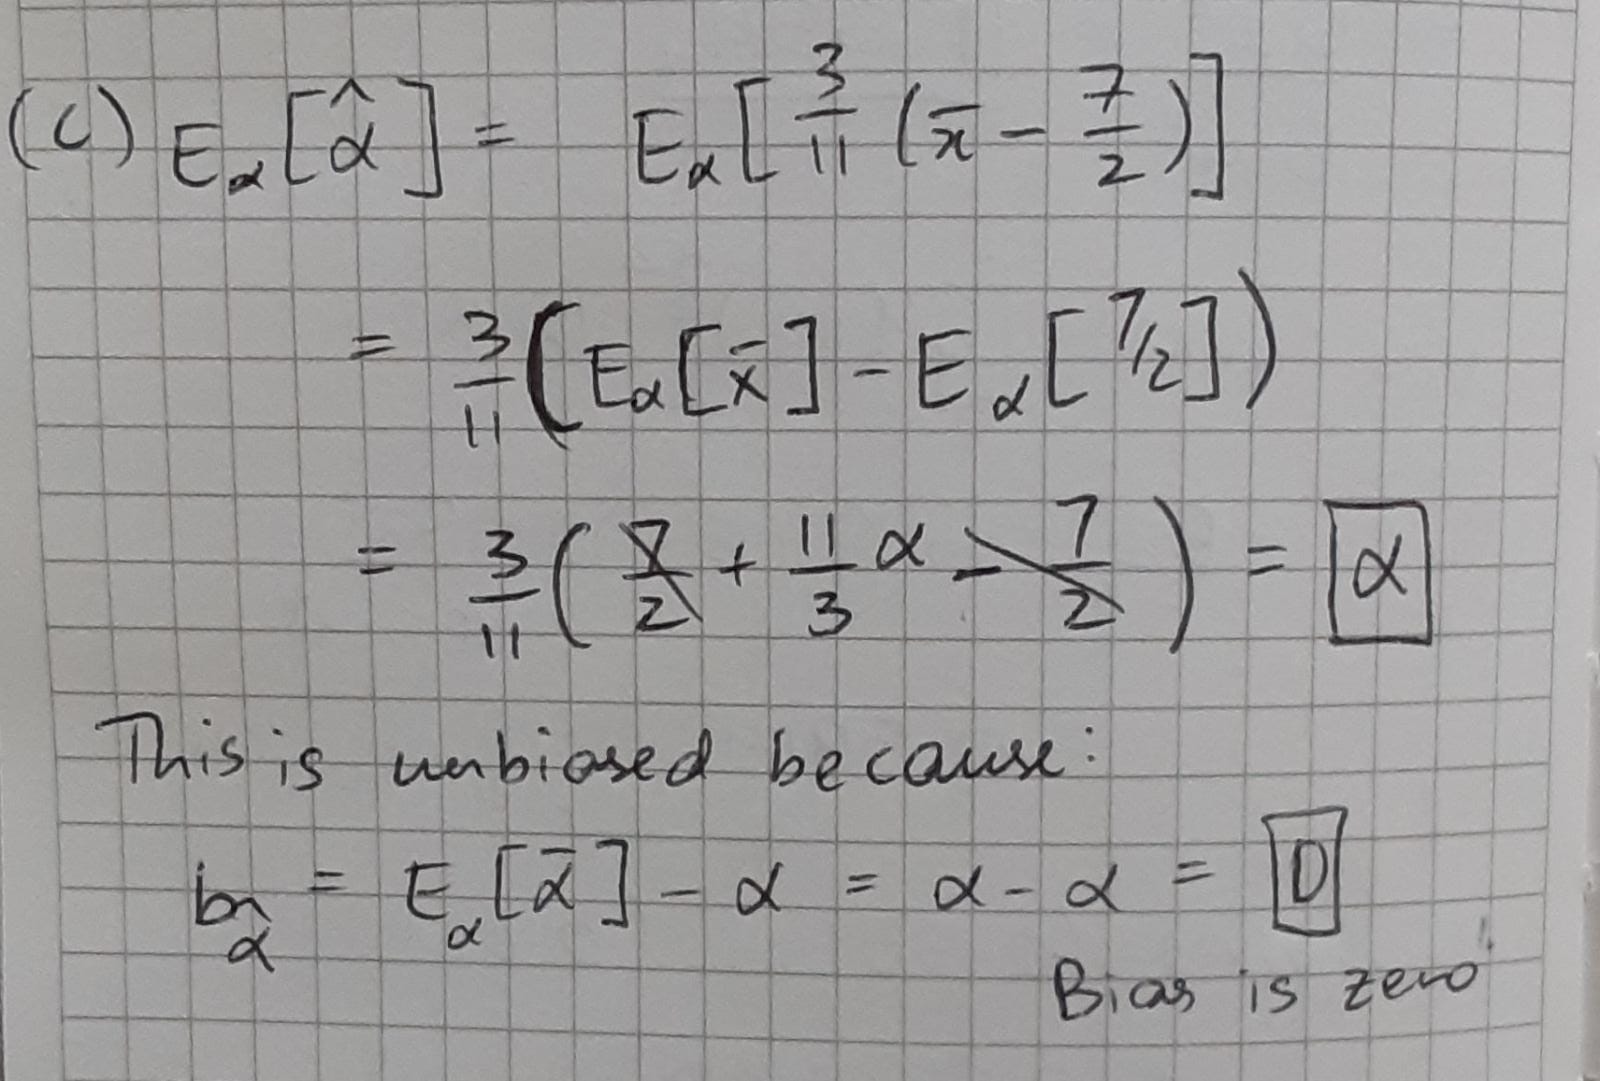 (c) E_α[α̂] = E_α[3/11 (x̄ − 7/2)]
= 3/11 (E_α[x̄] − E_α[7/2])
= 3/11 (7/2 + 11/3 α − 7/2) = α
This is unbiased because:
b_α̂ = E_α[ᾱ] − α = α − α = 0
Bias is zero